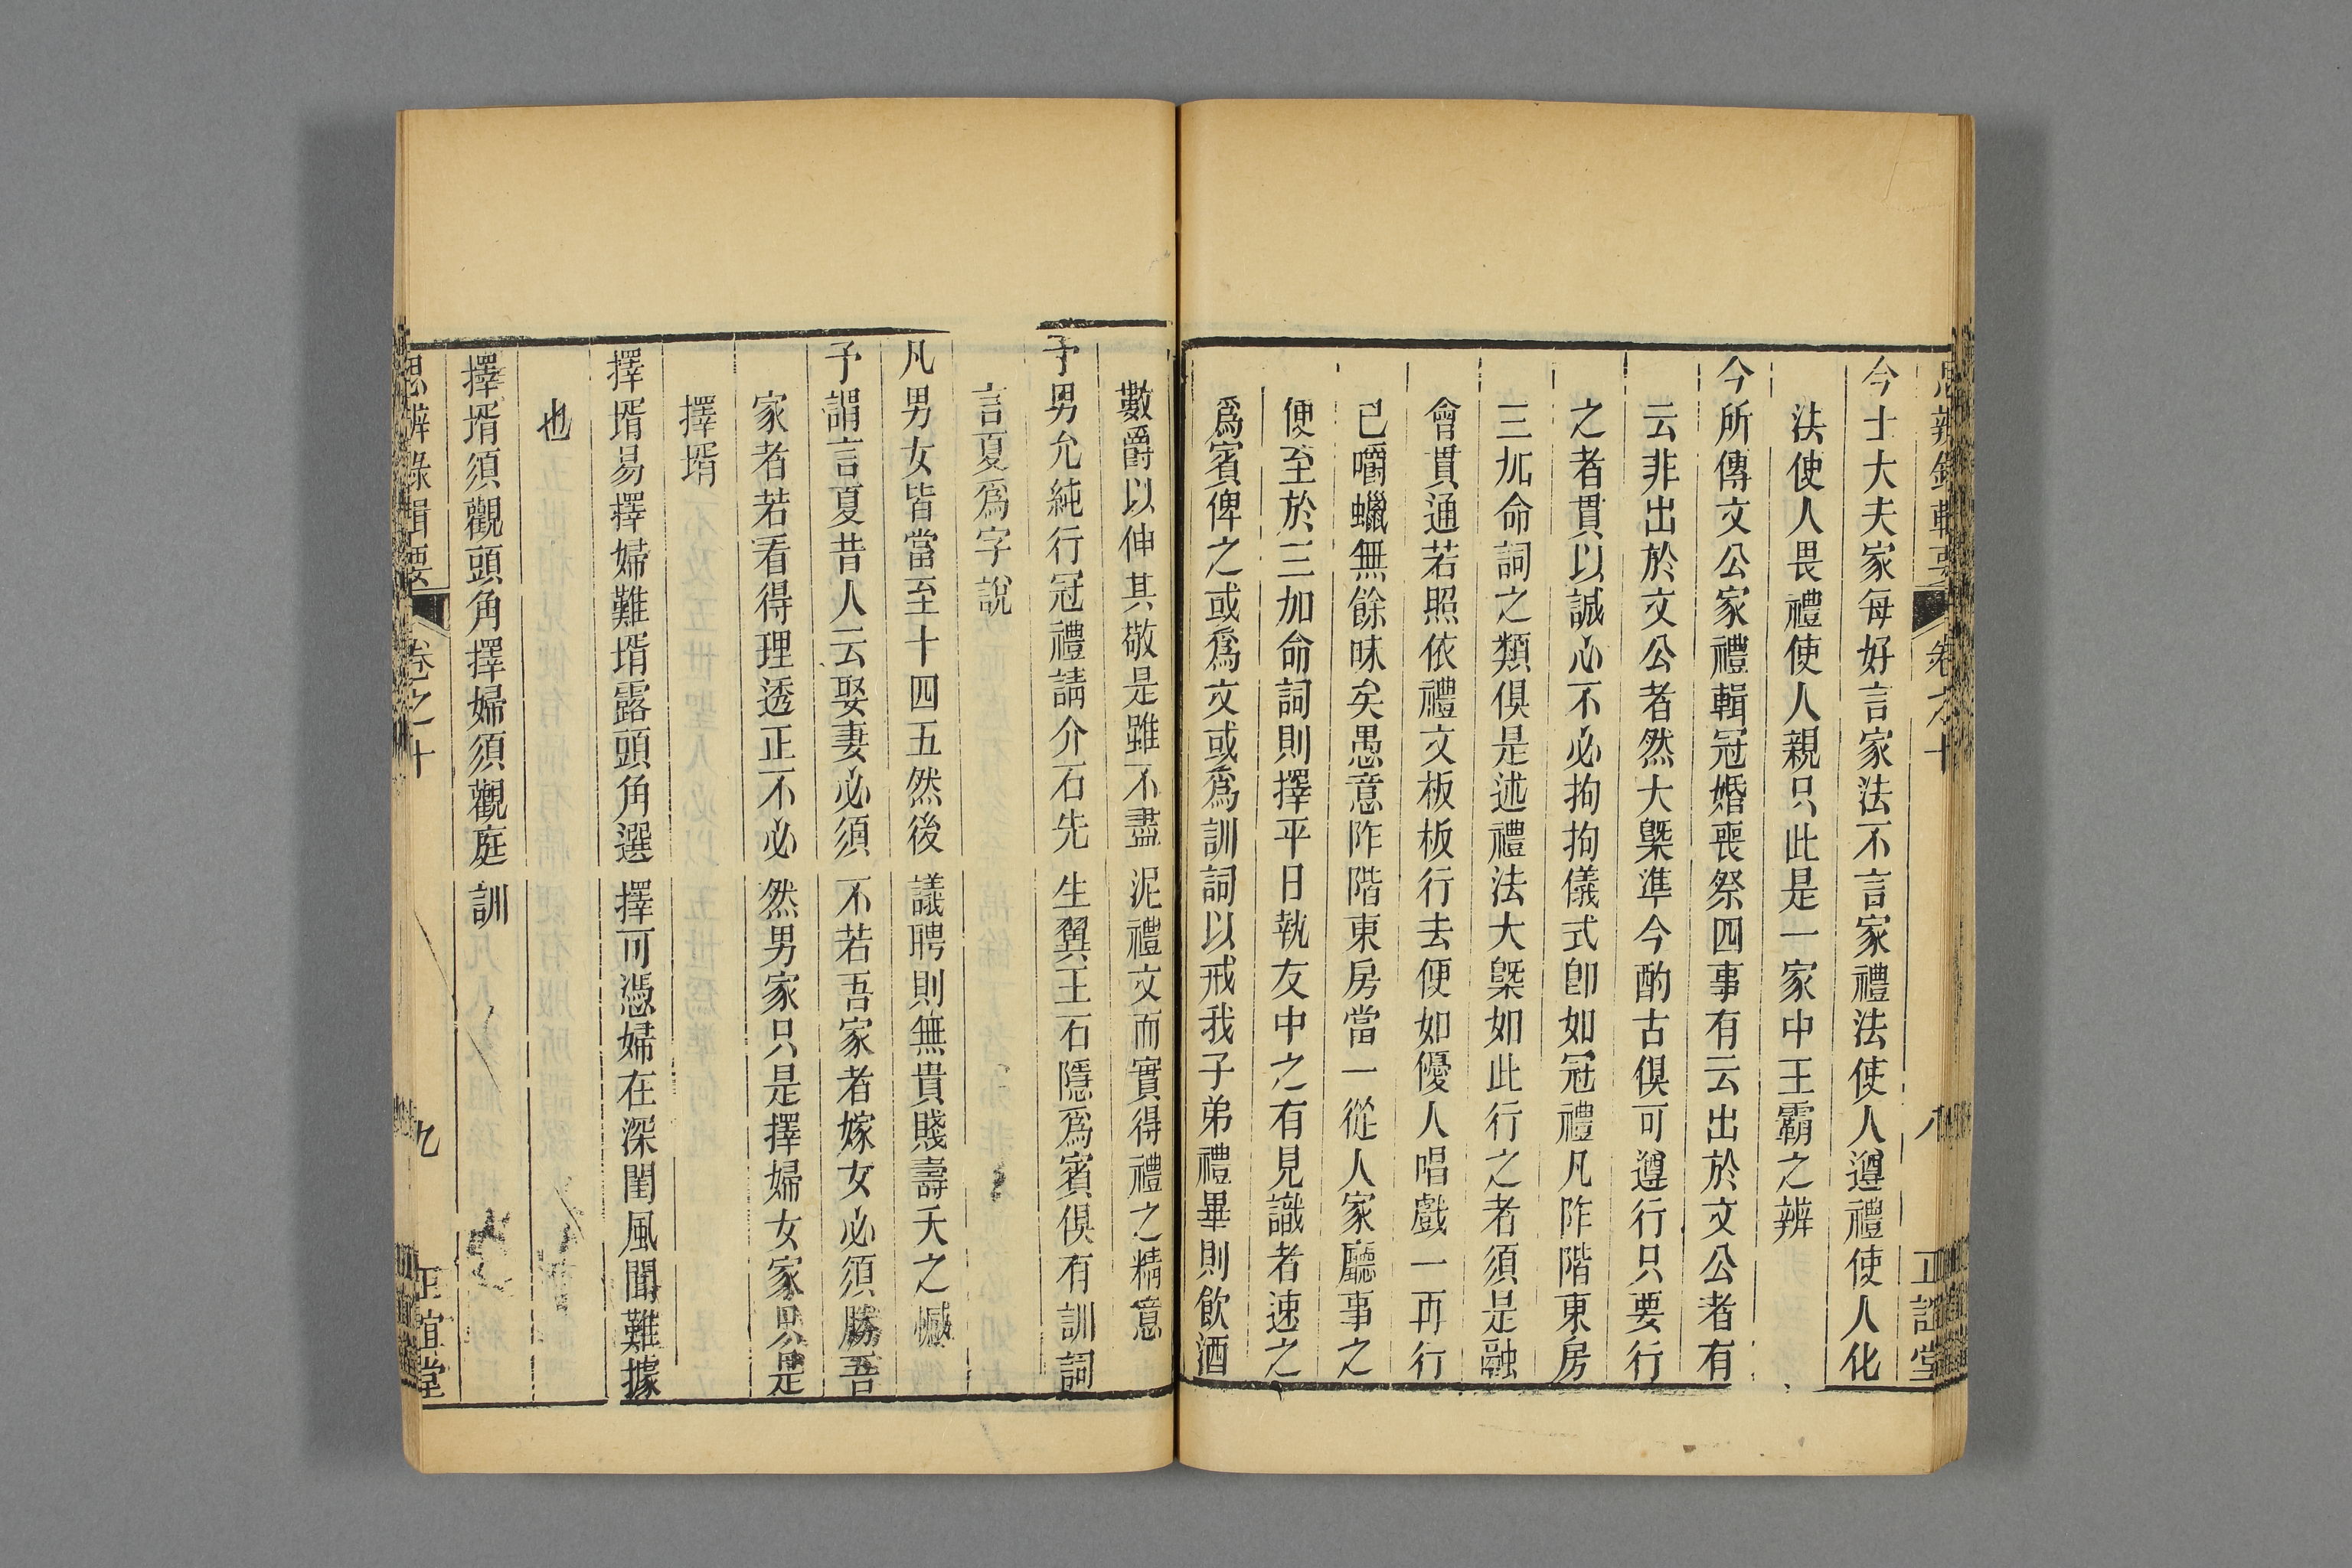 思辨錄輯要 卷之十 八 正誼堂
今士大夫家每好言家法不言家禮法使人遵禮使人化
法使人畏禮使人親只此是一家中王霸之辨
今所傳文公家禮輯冠婚喪祭四事有云出於文公者有
云非出於文公者然大槩準今酌古俱可遵行只要行
之者貫以誠心不必拘拘儀式卽如冠禮凡阼階東房
三加命詞之類俱是述禮法大槩如此行之者須是融
會貫通若照依禮文板板行去便如優人唱戲一再行
已嚼蠟無餘味矣愚意阼階東房當一從人家廳事之
便至於三加命詞則擇平日執友中之有見識者速之
爲賓俾之或爲文或爲訓詞以戒我子弟禮畢則飲酒
數爵以伸其敬是雖不盡泥禮文而實得禮之精意
予男允純行冠禮請介石先生翼王石隱爲賓俱有訓詞
言夏爲字說
凡男女皆當至十四五然後議聘則無貴賤壽夭之憾
予謂言夏昔人云娶妻必須不若吾家者嫁女必須勝吾
家者若看得理透正不必然男家只是擇婦女家只是
擇壻
擇壻易擇婦難壻露頭角選擇可憑婦在深閨風聞難據
也
擇壻須觀頭角擇婦須觀庭訓
思辨錄輯要 卷之十 九 正誼堂